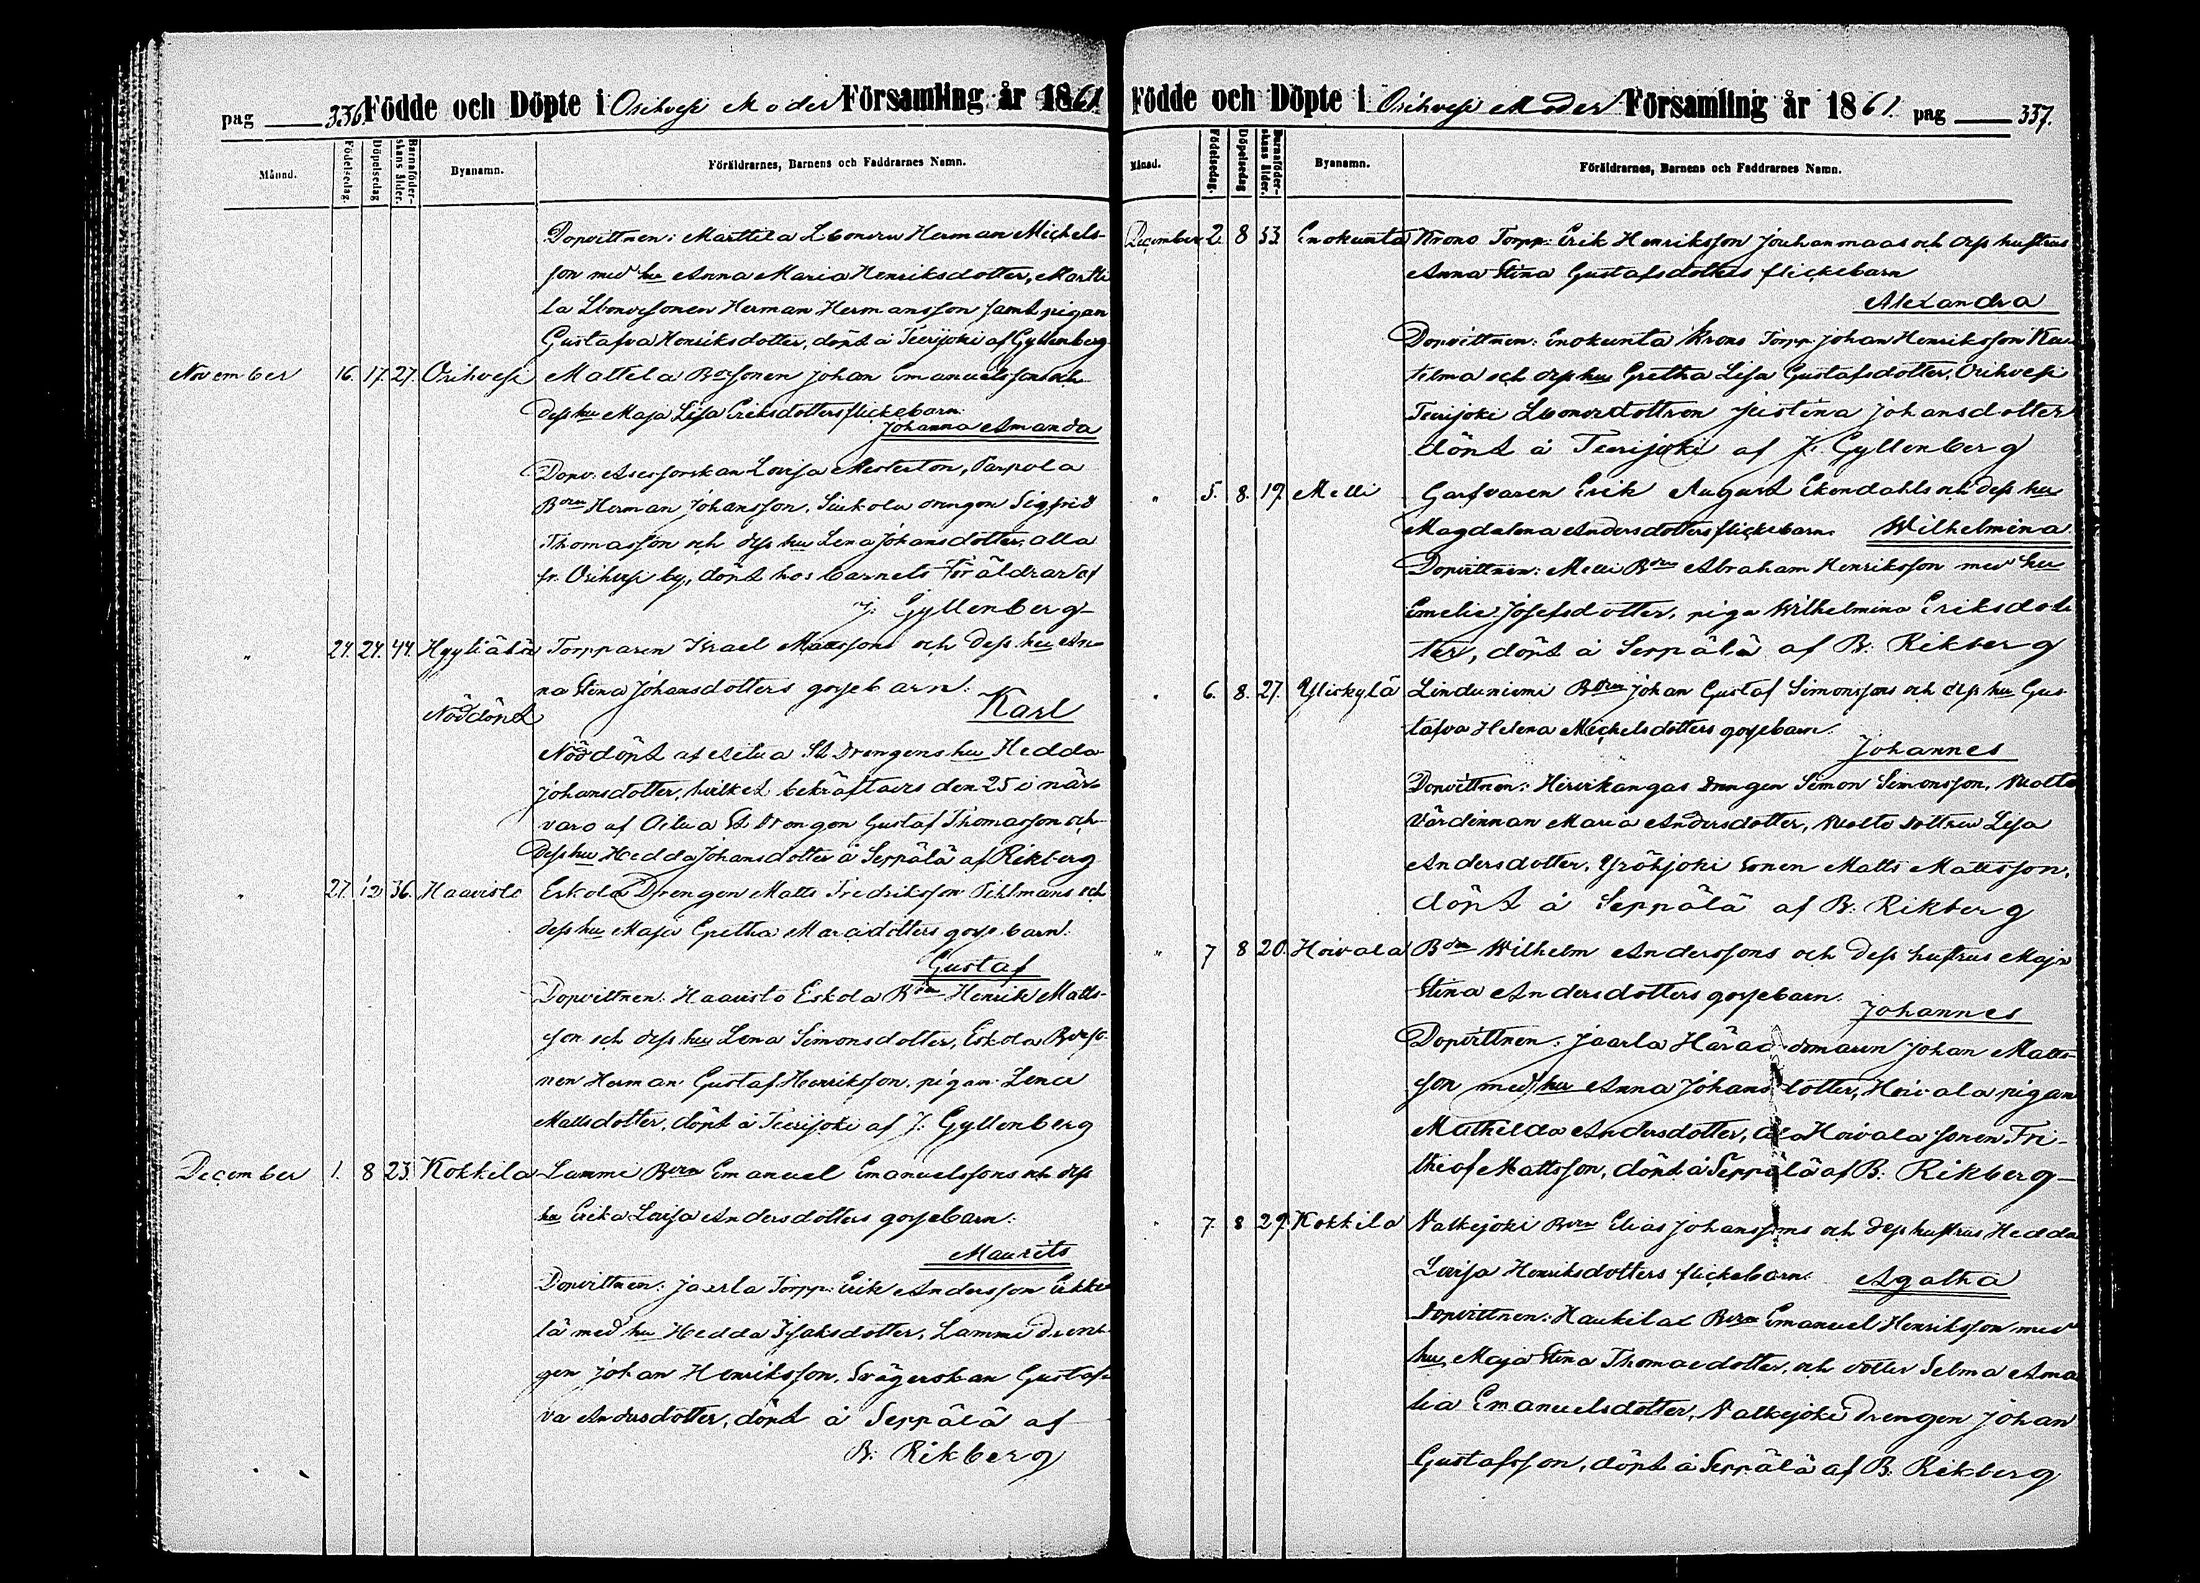 pag 336. Födde och Döpte i Orihvesi Moder Församling år 1861.
Månad. Födelsedag. Döpelsedag Barnaföder-skans ålder. Byanamn. Föräldrarnes, Barnens och Faddrarnes Namn.
Dopvittnen: Marttila Lbonden Herman Michels-
son med hu Anna Maria Henriksdotter, Martti
la Lbondsonen Herman Hermansson samt pigan
Gustafva Henriksdotter, döpt å Teerijoki af Gyllenberg
November 16. 17. 27. Orihvesi Mattela Bdesonen Johan Emanuelssons och
dess hu Maja Lisa Eriksdotters flickebarn.
Johanna Amanda
Dopv. Assessorskan Lovisa Mesterton, Parpola
Bden Herman Johansson, Siukola drengen Sigfrid
Thomasson och dess hu Lena Johansdotter, alla
fr. Orihvesi by, döpt hos barnets Föräldrar af
J. Gyllenberg
" 24. 24. 44. Hyyliälä Torpparen Israel Matssons och dess hu An-
na Stina Johansdotters gossebarn.
Nöddöpt Karl
Nöddöpt af Aitua St Drengens hu Hedda
Johansdotter, hvilket bekräftades den 25 i när-
varo af Aitua St Drengen Gustaf Thomasson och
dess hu Hedda Johansdotter å Seppälä af Rikberg
" 27. 1/12 36. Haavisto Eskola Drengen Matts Fredriksson Pihlmans och
dess hu Maja Gretha Mariadotters gosse barn.
Gustaf
Dopvittnen: Haavisto Eskola Bden Henrik Matts-
son och dess hu Lena Simonsdotter, Eskola Bdeso-
nen Herman Gustaf Henriksson, pigan Lena
Mattsdotter, döpt å Teerijoki af J. Gyllenberg
December 1. 8 23. Kokkila Lamme Bden Emanuel Emanuelssons och dess
hu Erika Lovisa Andersdotters gossebarn.
Maurits
Dopvittnen: Jaarla Torpp: Erik Andersson Erkki
lä med hu Hedda Isaksdotter, Lamme dren-
gen Johan Henriksson, Svägerskan Gustaf-
va Andersdotter, döpt å Seppälä af
B. Rikberg
Födde och Döpte i Orihvesi Moder Församling år 1861. pag 337.
Månad. Födelsedag. Döpelsedag Barnaföder-skans ålder. Byanamn. Föräldrarnes, Barnens och Faddrarnes Namn.
December 2. 8 33 Enokunta Krono Torpp: Erik Henriksson Jouhanmaas och dess hustrus
Anna Stina Gustafsdotters flickebarn
Alexandra
Dopvittnen: Enokunta Krono Torpp Johan Henriksson
och dess hu Gretha Lisa Gustafsdotter, Orihvesi
Teerijoki Lbondedottren Justina Johansdotter
döpt å Teerijoki af J. Gyllenberg
" 5. 8. 19. Melli Garfvaren Erik August Ekendahls och dess hu
Magdalena Andersdotters flickebarn. Wilhelmina
Dopvittnen: Melli Bden Abraham Henriksson med hu
Emelie Josefsdotter, piga Wilhelmina Eriksdot-
ter, döpt å Seppälä af B. Rikberg
" 6. 8. 27. Yliskylä Linduniemi Bden Johan Gustaf Simonssons och dess hu Gus-
tafva Helena Michelsdotters gossebarn.
Johannes
Dopvittnen: Hirvikangas drengen Simon Simonsson,
Värdinnan Maria Andersdotter, dottren Lisa
Andersdotter, Yröhjoki sonen Matts Mattsson,
döpt å Seppälä af B. Rikberg
" 7 8 20. Hoivala Bden Wilhelm Anderssons och dess hustrus Maja
Stina Andersdotters gossebarn.
Johannes
Dopvittnen: Jaarla Häradsdomaren Johan Matts-
son med hu Anna Johansdotter, Hoivala pigan
Mathilda Andersdotter, Ala Hoivala sonen Fri-
thiof Mattsson, döpt å Seppälä af B. Rikberg
" 7. 8 29. Kokkila Valkejoki Bden Elias Johanssons och dess hustrus Hedda
Lovisa Henriksdotters flickebarn. Agatha
Dopvittnen: Haukilax Bden Emanuel Henriksson med
hu Maja Stina Thomasdotter, och dotter Selma Ama
lia Emanuelsdotter, Valkejoki drengen Johan
Gustafsson, döpt å Seppälä af B. Rikberg